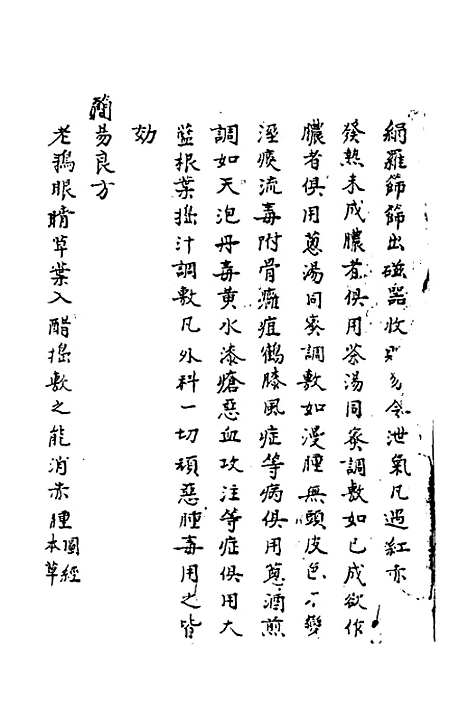 絹羅篩篩出磁器收貯勿令泄氣凡遇紅赤
發熱未成膿者俱用茶湯同蜜調敷如已成欲作
膿者俱用蔥湯同蜜調敷如漫腫無頭皮色不變
溼痰流毒附骨癰疽鶴膝風症等病俱用蔥酒煎
調如天泡丹毒黃水漆瘡惡血攻注等症俱用大
藍根葉搗汁調敷凡外科一切頑惡腫毒用之皆
効
簡易良方
老鴉眼睛草葉入醋搗敷之能消赤腫圖經本草